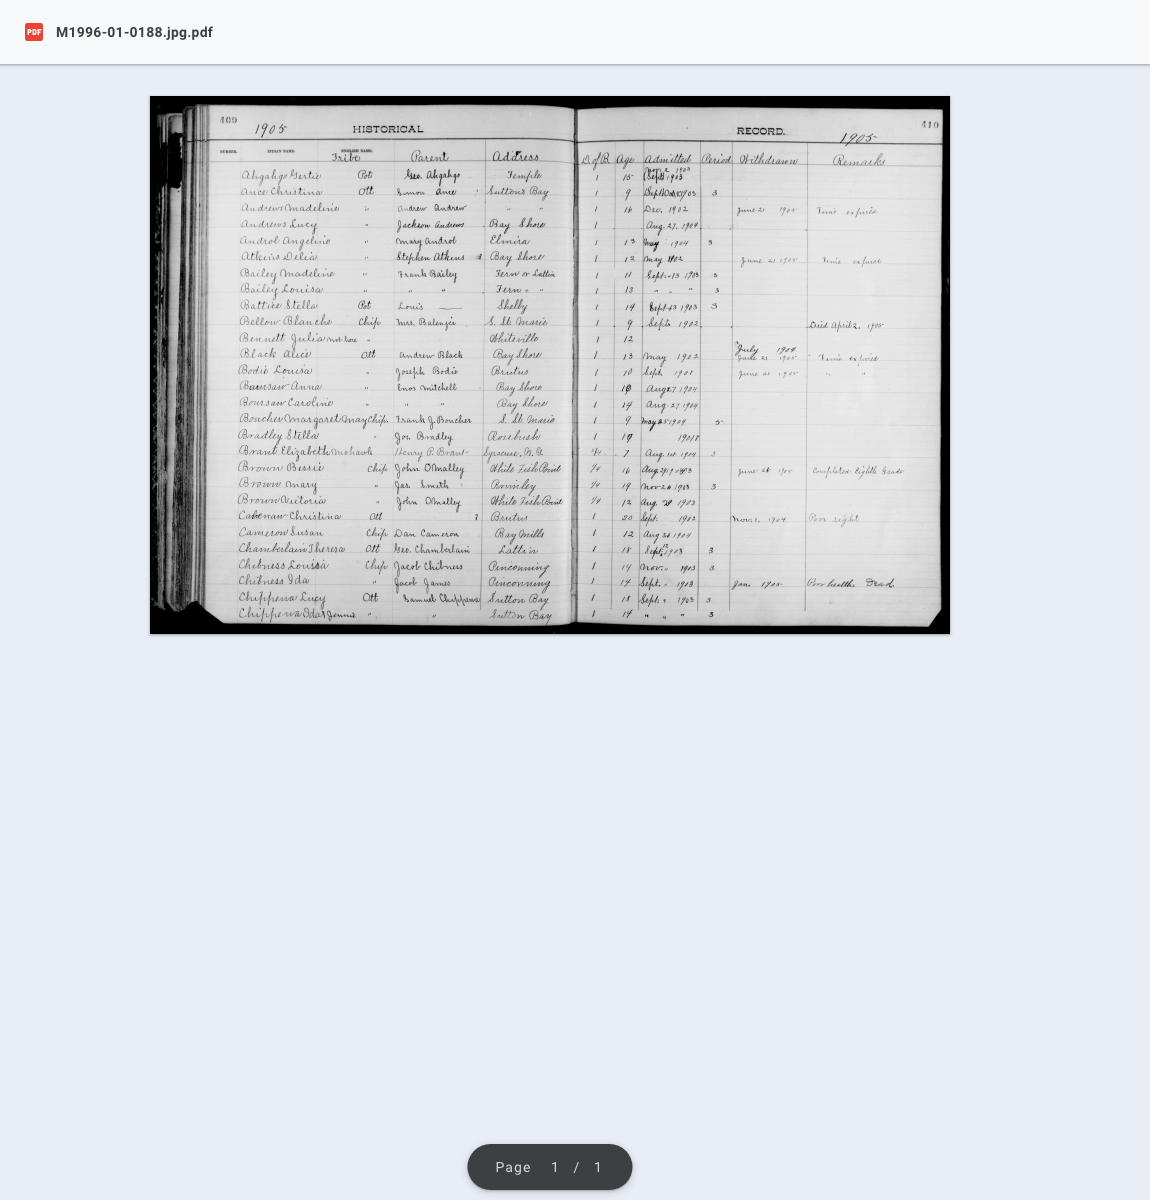 M1996-01-0188.jpg.pdf
409 1905 HISTORICAL
RECORD. 1905 410
NUMBER. INDIAN NAME. ENGLISH NAME. Tribe Parent Address D. of B. Age Admitted Period Withdrawn Remarks
Ahgahgo Gertie Pot Geo. Ahgahgo Temple 1 15 Nov. 2 1903 Sept 1903
Ance Christina Ott Simon Ance Suttons Bay 1 9 Sept 1903 3
Andrews Madeline " Andrew Andrew " " 1 16 Dec. 1902 June 21 1905 Time expired
Andrews Lucy " Jackson Andrews Bay Shore 1 Aug. 27. 1904
Androt Angeline " Mary Androt Elmira 1 13 May 1904 3
Atkins Delia " Stephen Atkins Bay Shore 1 12 May 1902 June 21 1905 Time expired
Bailey Madeline " Frank Bailey Fern or Lattin 1 11 Sept. 13 1903 3
Bailey Louisa " " " Fern " " 1 13 " " " 3
Battice Stella Pot Louis Shelby 1 14 Sept 13 1903 3
Bellow Blanche Chip Mrs. Balenger S. St. Marie 1 9 Sept. 1902. Died April 2. 1905
Bennett Julia not here " Whiteville 1 12
Black Alice Ott Andrew Black Bay Shore 1 13 May 1902 July 1904 June 21 1905 Time expired
Bodie Louisa " Joseph Bodie Brutus 1 10 Sept. 1901 June 21 1905 " "
Boursaw Anna " Enos Mitchell Bay Shore 1 10 Aug 27 1904
Boursaw Caroline " " " Bay Shore 1 14 Aug. 27 1904
Boucher Margaret May Chip. Frank J. Boucher S. St. Marie 1 9 May 25 1904 5
Bradley Stella " Jos. Bradley Rosebush 1 1901
Brant Elizabeth Mohawk Henry P. Brant Syracuse, N.Y. 4/4 7 Aug. 1904 3
Brown Bessie Chip John OMalley White Fish Point 1/4 16 Aug. 1903 June 21 1905 Completed Eighth Grade
Brown Mary " Jas. Smith Brimley 1/4 14 Nov 20 1903 3
Brown Victoria " John OMalley White Fish Point 1/4 12 Aug. 1903
Cabenaw Christina Ott ? Brutus 1 20 Sept. 1902 Nov. 1. 1904 Poor sight
Cameron Susan Chip Dan Cameron Bay Mills 1 12 Aug 26 1904
Chamberlain Theresa Ott Geo. Chamberlain Lattin 1 18 Sept. 12 1903 3
Chibness Louisa Chip Jacob Chibness Pinconning 1 14 Nov. " 1903 3
Chibness Ida " Jacob James Pinconning 1 14 Sept. " 1903 Jan. 1905 Poor health. Dead.
Chippewa Lucy Ott Samuel Chippewa Sutton Bay 1 18 Sept. " 1903 3
Chippewa Ida Jennie " " Sutton Bay 1 14 " " " 3
Page 1 / 1